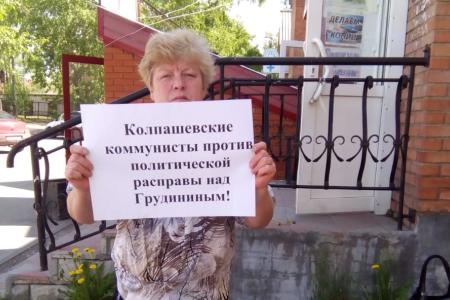 ДЕЛАЕМ
КОПИИ
Колпашевские
коммунисты против
политической
расправы над
Грудининым!